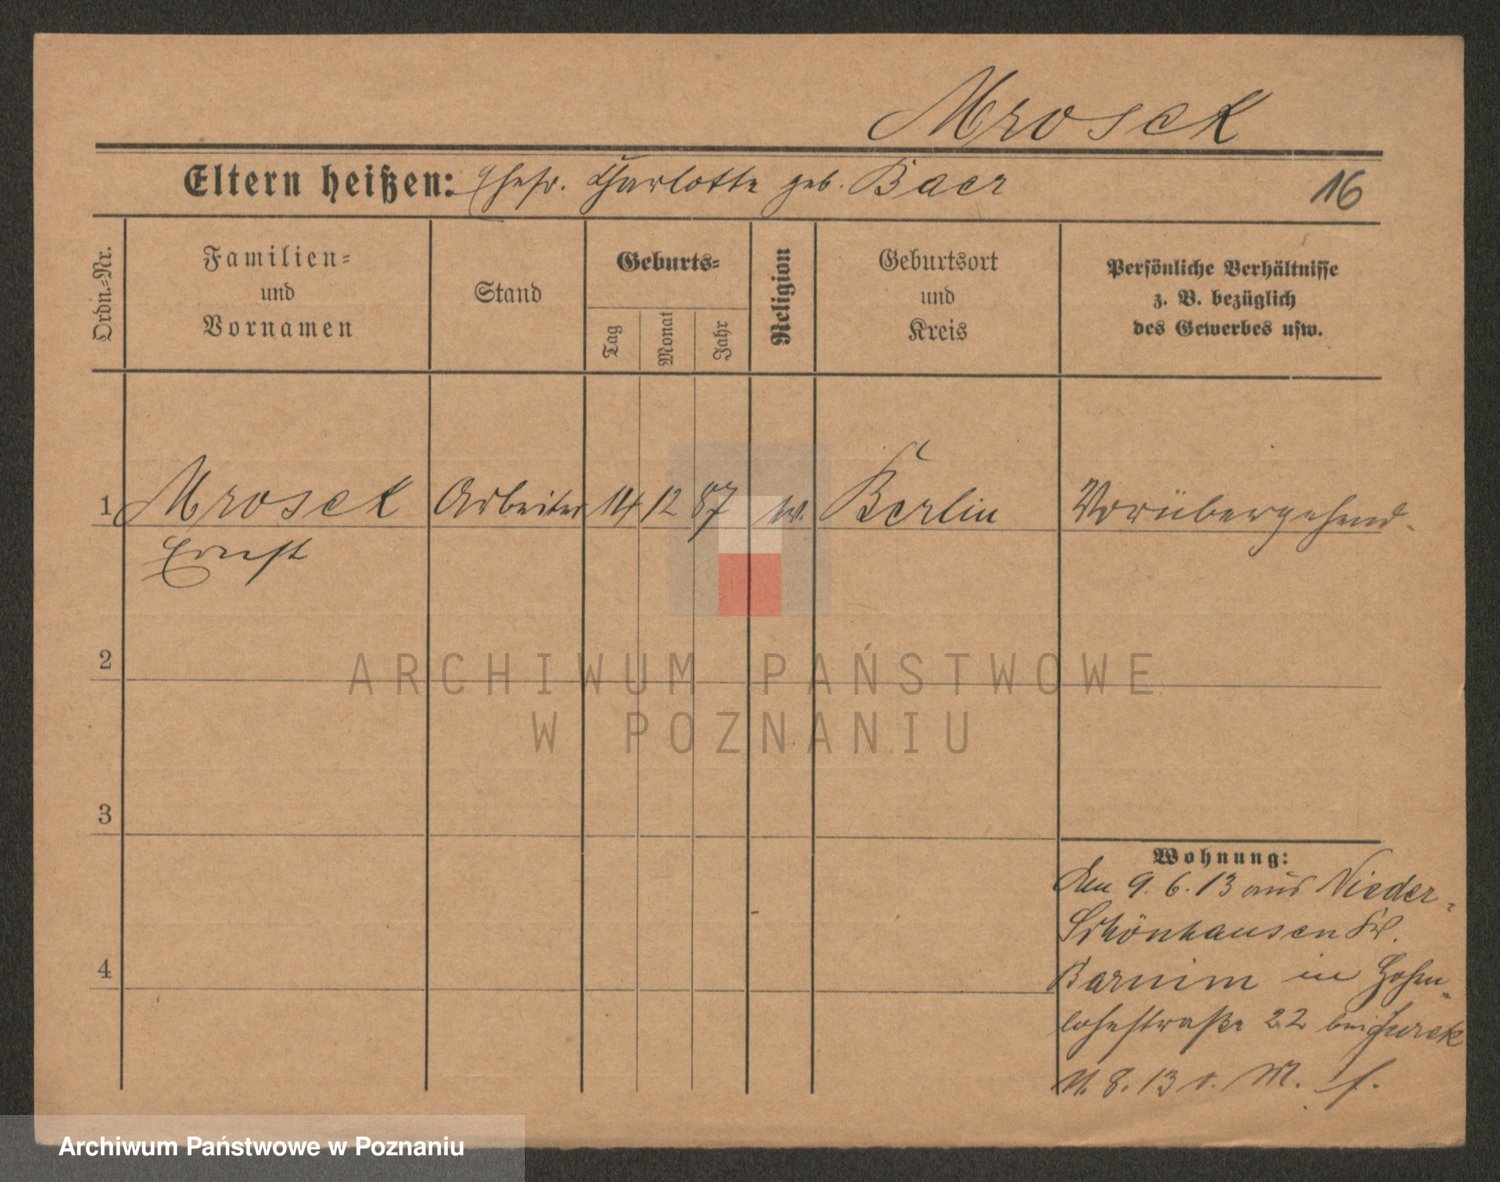 Mrosek
Eltern heißen: Ehefr. Charlotte geb. Baer
16
Ordn.-Nr.
Familien-
und
Vornamen
Stand
Geburts-
Tag
Monat
Jahr
Religion
Geburtsort
und
Kreis
Persönliche Verhältnisse
z. B. bezüglich
des Gewerbes usw.
1 Mrosek Arbeiter 14 12 87 Berlin Vorübergehend.
Ernst
2
ARCHIWUM PAŃSTWOWE
W POZNANIU
3
Wohnung:
den 9.6.13 aus Nieder-
Schönhausen Kr.
4
Barnim in Hohen-
lohestraße 22 bei Jurek
8.13 v. M.
Archiwum Państwowe w Poznaniu